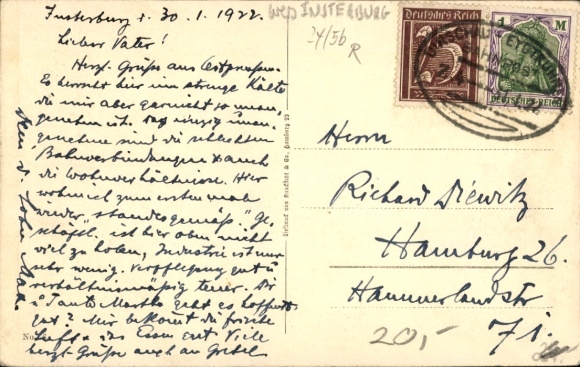 Insterburg d. 30.1.1922.
Lieber Vater!
Herzl. Grüße aus Ostpreussen.
Es herrscht hier eine strenge Kälte
die mir aber garnicht so unan-
genehm ist. Das einzig unan-
genehme sind die schlechten
Bahnverbindungen & auch
die Wohnverhältnisse. Hier
wohn ich zum ersten mal
wieder "standesgemäß". Ge-
schäftl. ist hier oben nicht
viel zu holen, Industrie ist nur
sehr wenig. Verpflegung gut &
verhältnismäßig teuer. Dir
& Tante Martha geht es hoffentl.
gut? Mir bekommt die frische
Luft & das Essen gut. Viele
herzl. Grüße auch an Gretel
Dein d. Sohn Max.
No
wep INSTERBURG
24/56
R
Deutsches Reich
25
1 M
DEUTSCHES REICH
BAHNPOST
Herrn
Richard Diewitz
Hamburg 26.
Hammerlandstr
71.
20,-